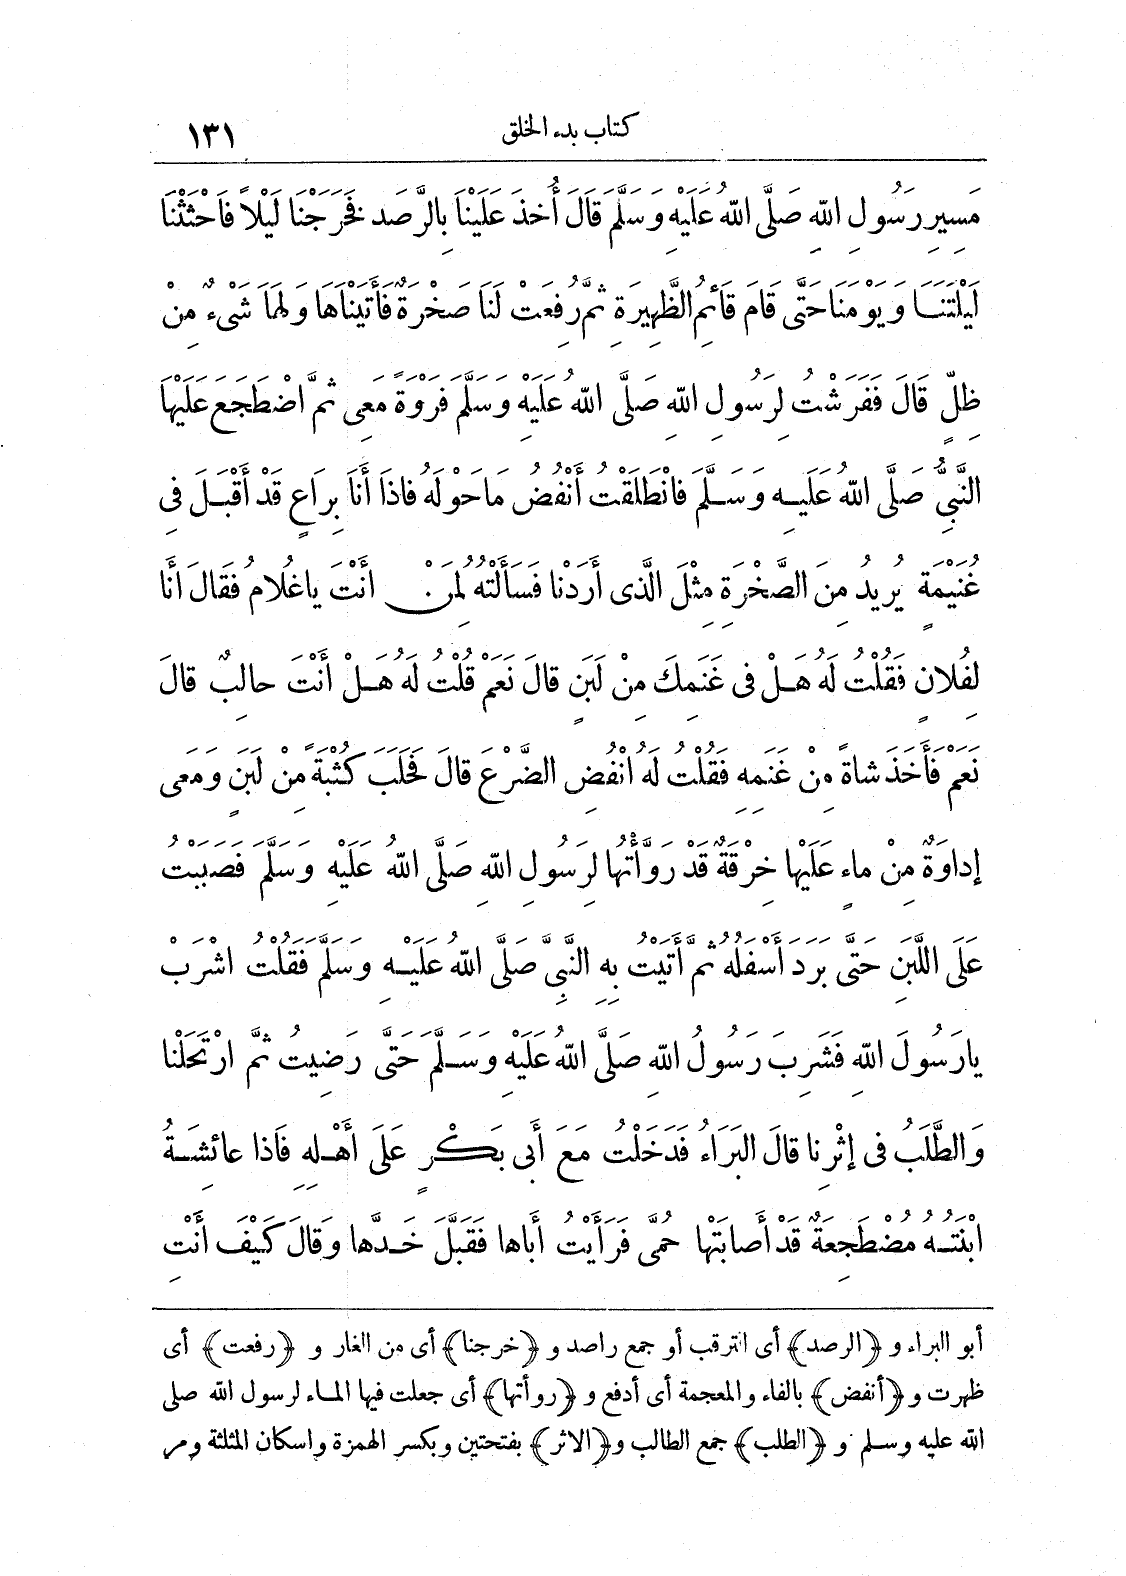 كتاب بدء الخلق
١٣١
مَسِيرِ رَسُولِ اللّهِ صَلَّى اللّهُ عَلَيْهِ وَسَلَّمَ قَالَ أُخِذَ عَلَيْنَا بِالرَّصَدِ فَخَرَجْنَا لَيْلاً فَاحْثَثْنَا
لَيْلَتَنَا وَيَوْمَنَا حَتَّى قَامَ قَائِمُ الظَّهِيرَةِ ثُمَّ رُفِعَتْ لَنَا صَخْرَةٌ فَأَتَيْنَاهَا وَلَهَا شَىْءٌ مِنْ
ظِلٍّ قَالَ فَفَرَشْتُ لِرَسُولِ اللّهِ صَلَّى اللّهُ عَلَيْهِ وَسَلَّمَ فَرْوَةً مَعِى ثُمَّ اضْطَجَعَ عَلَيْهَا
النَّبِىُّ صَلَّى اللّهُ عَلَيْهِ وَسَلَّمَ فَانْطَلَقْتُ أَنْفُضُ مَا حَوْلَهُ فَاذَا أَنَا بِرَاعٍ قَدْ أَقْبَلَ فِى
غُنَيْمَةٍ يُرِيدُ مِنَ الصَّخْرَةِ مِثْلَ الَّذِى أَرَدْنَا فَسَأَلْتُهُ لِمَنْ أَنْتَ يَاغُلَامُ فَقَالَ أَنَا
لِفُلَانٍ فَقُلْتُ لَهُ هَلْ فِى غَنَمِكَ مِنْ لَبَنٍ قَالَ نَعَمْ قُلْتُ لَهُ هَلْ أَنْتَ حَالِبٌ قَالَ
نَعَمْ فَأَخَذَ شَاةً مِنْ غَنَمِهِ فَقُلْتُ لَهُ انْفُضِ الضَّرْعَ قَالَ فَحَلَبَ كُثْبَةً مِنْ لَبَنٍ وَمَعِى
إِدَاوَةٌ مِنْ مَاءٍ عَلَيْهَا خِرْقَةٌ قَدْ رَوَّأْتُهَا لِرَسُولِ اللّهِ صَلَّى اللّهُ عَلَيْهِ وَسَلَّمَ فَصَبَبْتُ
عَلَى اللَّبَنِ حَتَّى بَرَدَ أَسْفَلُهُ ثُمَّ أَتَيْتُ بِهِ النَّبِىَّ صَلَّى اللّهُ عَلَيْهِ وَسَلَّمَ فَقُلْتُ اشْرَبْ
يَارَسُولَ اللّهِ فَشَرِبَ رَسُولُ اللّهِ صَلَّى اللّهُ عَلَيْهِ وَسَلَّمَ حَتَّى رَضِيتُ ثُمَّ ارْتَحَلْنَا
وَالطَّلَبُ فِى إِثْرِنَا قَالَ الْبَرَاءُ فَدَخَلْتُ مَعَ أَبِى بَكْرٍ عَلَى أَهْلِهِ فَاذَا عَائِشَةُ
ابْنَتُهُ مُضْطَجِعَةٌ قَدْ أَصَابَتْهَا حُمَّى فَرَأَيْتُ أَبَاهَا فَقَبَّلَ خَدَّهَا وَقَالَ كَيْفَ أَنْتِ
أبو البراء و ﴿الرصد﴾ أى الترقب أو جمع راصد و ﴿خرجنا﴾ أى من الغار و ﴿رفعت﴾ أى
ظهرت و ﴿أنفض﴾ بالفاء والمعجمة أى أدفع و ﴿روأتها﴾ أى جعلت فيها الماء لرسول الله صلى
الله عليه وسلم و ﴿الطلب﴾ جمع الطالب و ﴿الاثر﴾ بفتحتين وبكسر الهمزة واسكان المثلثة ومر